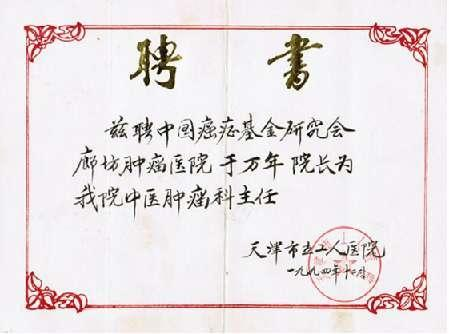 聘 书
兹聘中国癌症基金研究会
廊坊肿瘤医院 于万年 院长为
我院中医肿瘤科主任
天津市立工人医院
一九九四年十月